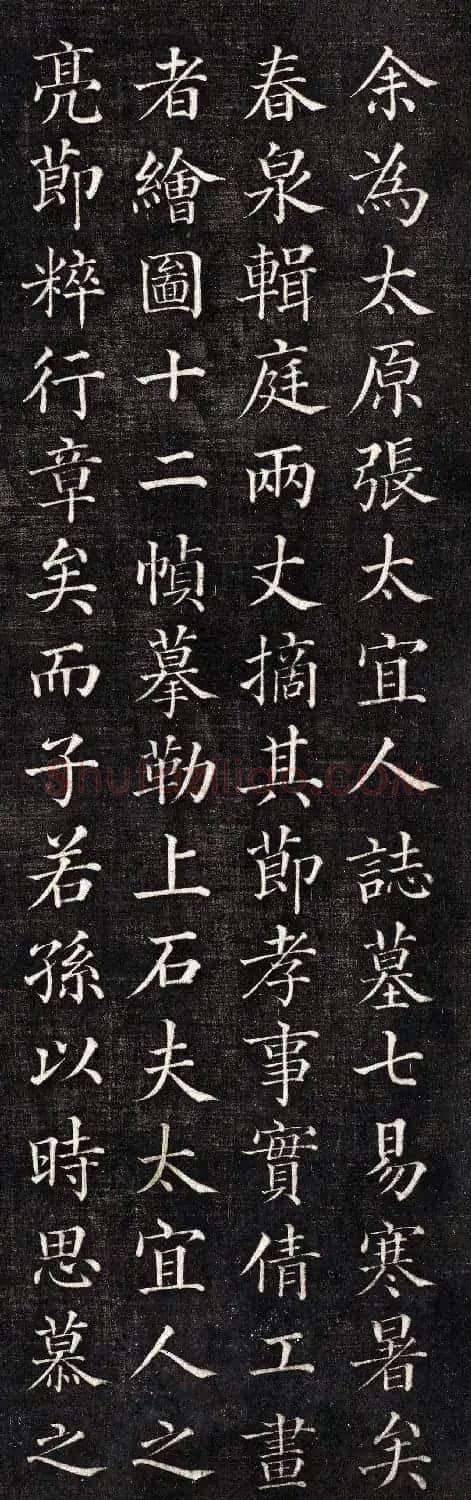 余為太原張太宜人誌墓七易寒暑矣
春泉輯庭兩丈摘其莭孝事實倩工畫
者繪圖十二幀摹勒上石夫太宜人之
亮莭粹行章矣而子若孫以時思慕之